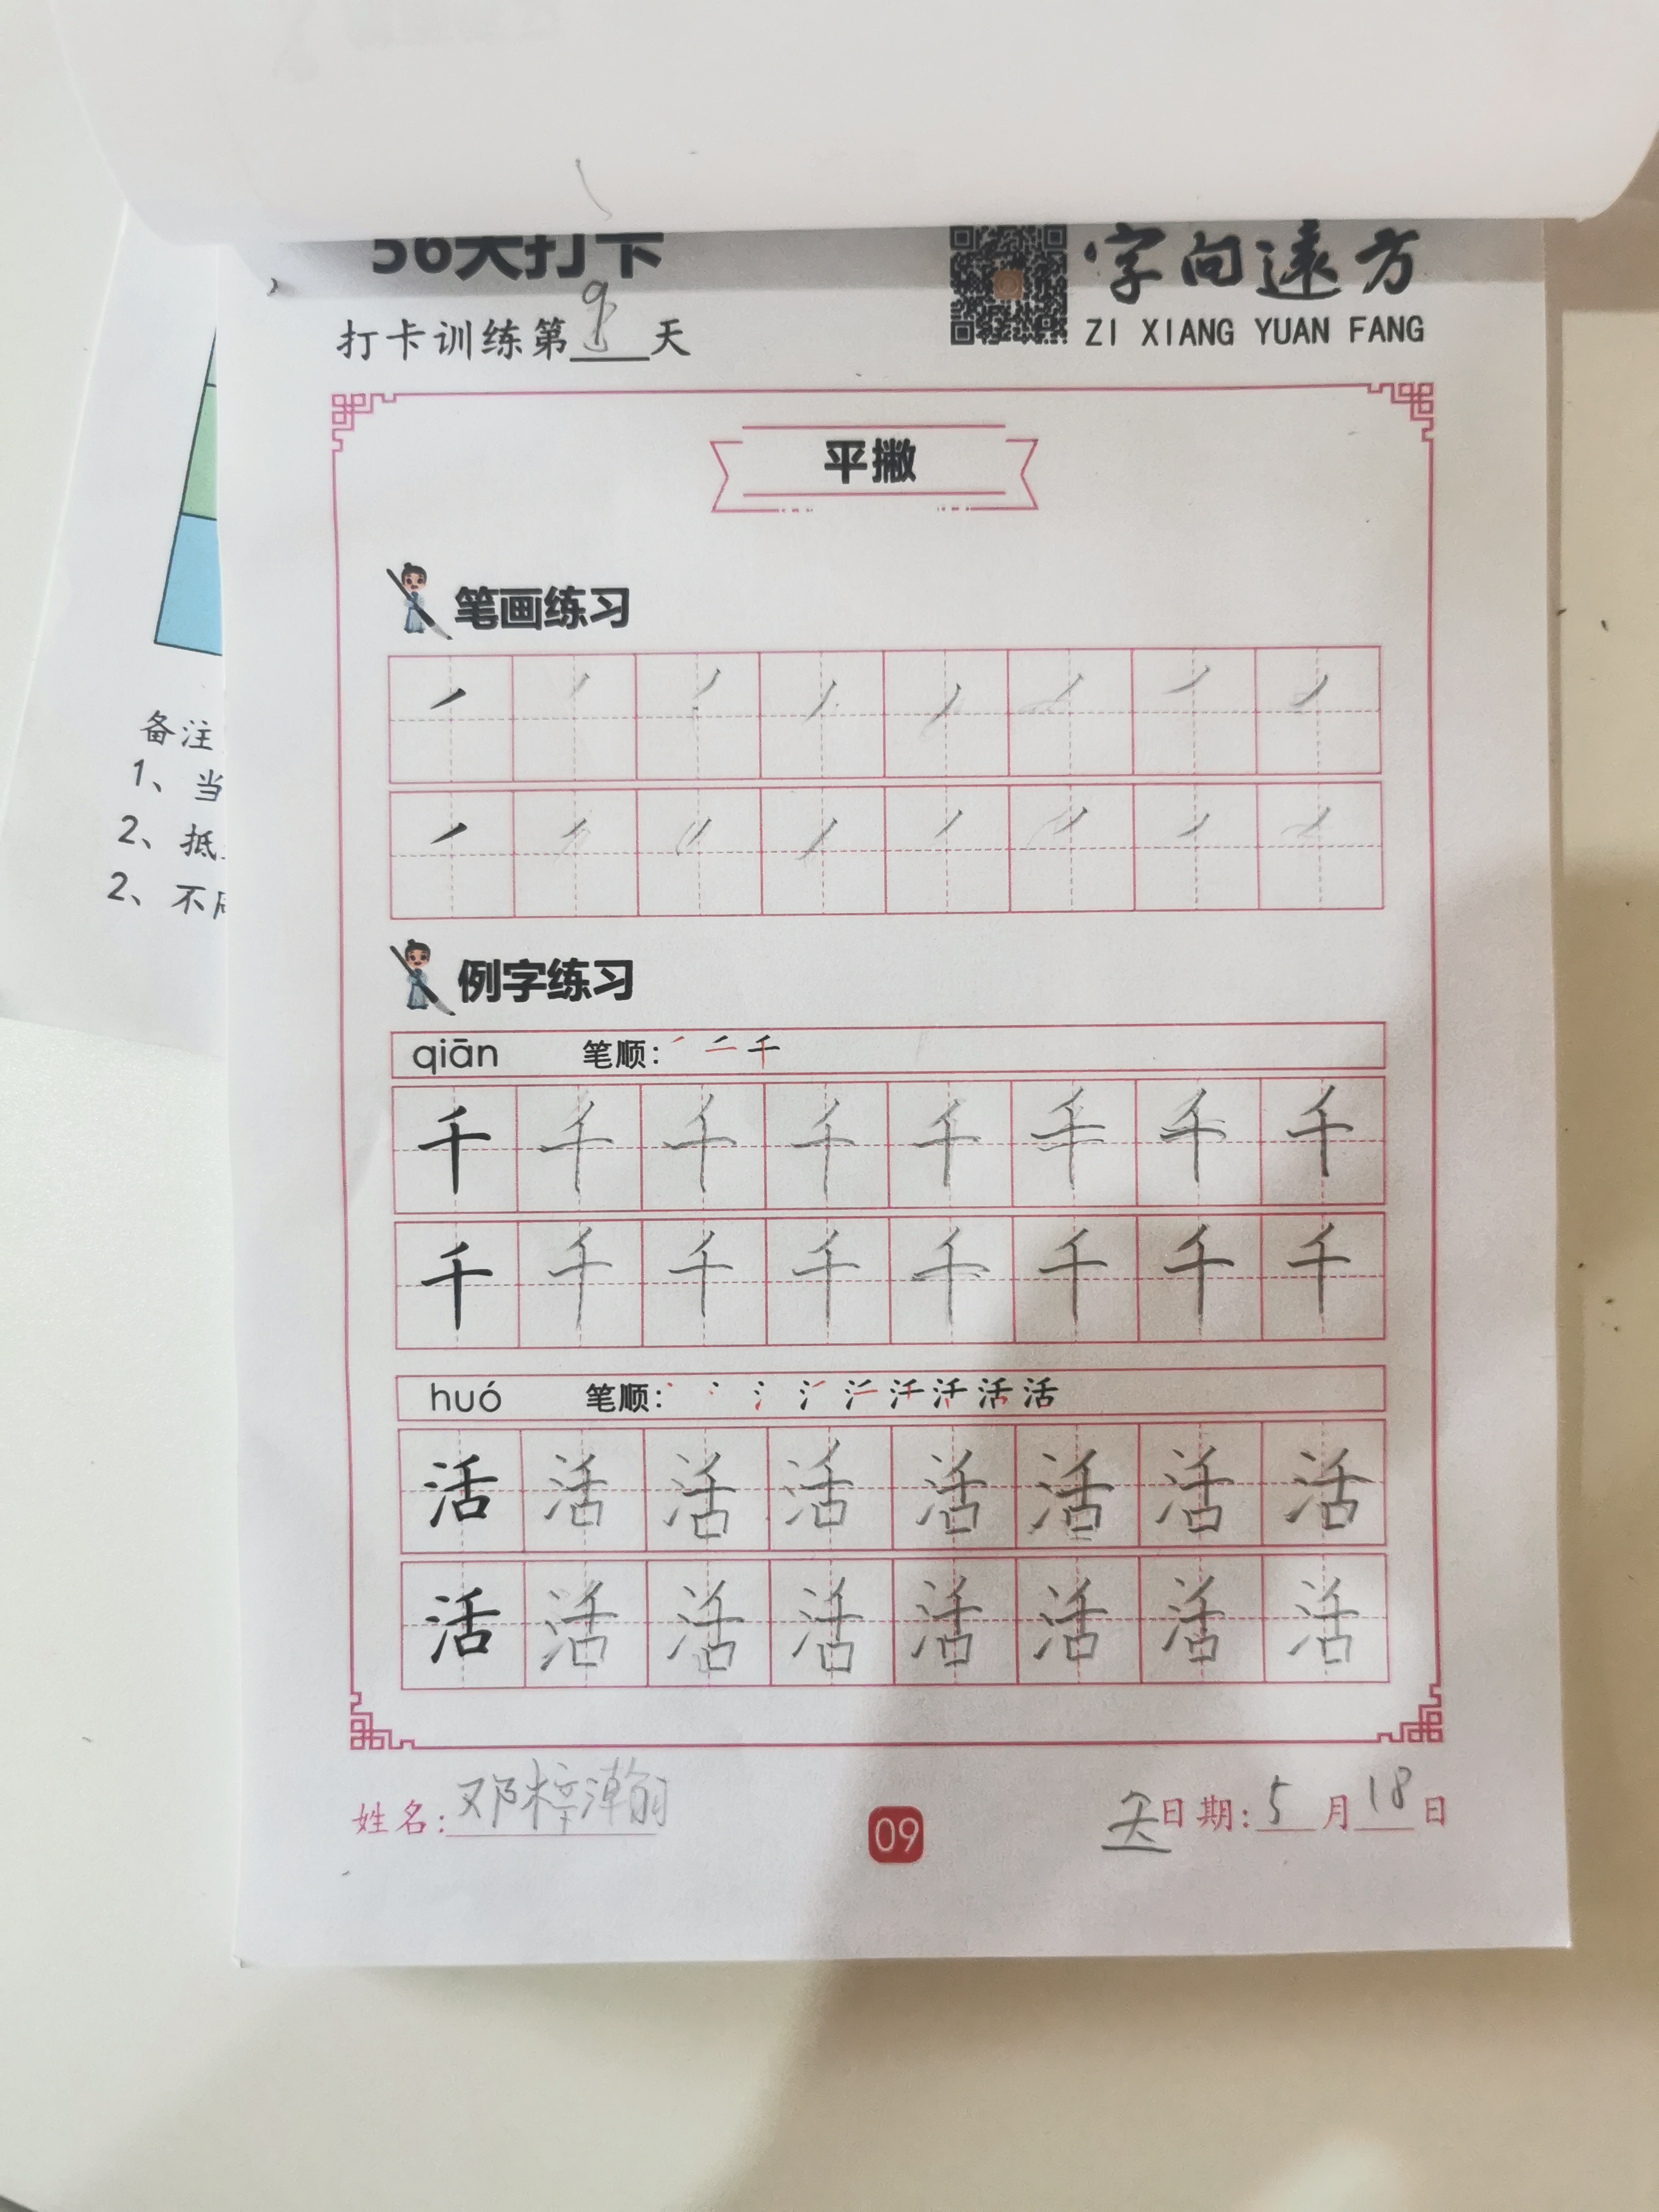 56天打卡
字向遠方
打卡训练第9天
ZI XIANG YUAN FANG
平撇
笔画练习
例字练习
qiān 笔顺：
千 千 千 千 千 千 千 千
千 千 千 千 千 千 千 千
huó 笔顺：
活 活 活 活 活 活 活 活
活 活 活 活 活 活 活 活
姓名：邓梓瀚
09
日期：5月18日
备注
1、当
2、抵
2、不同